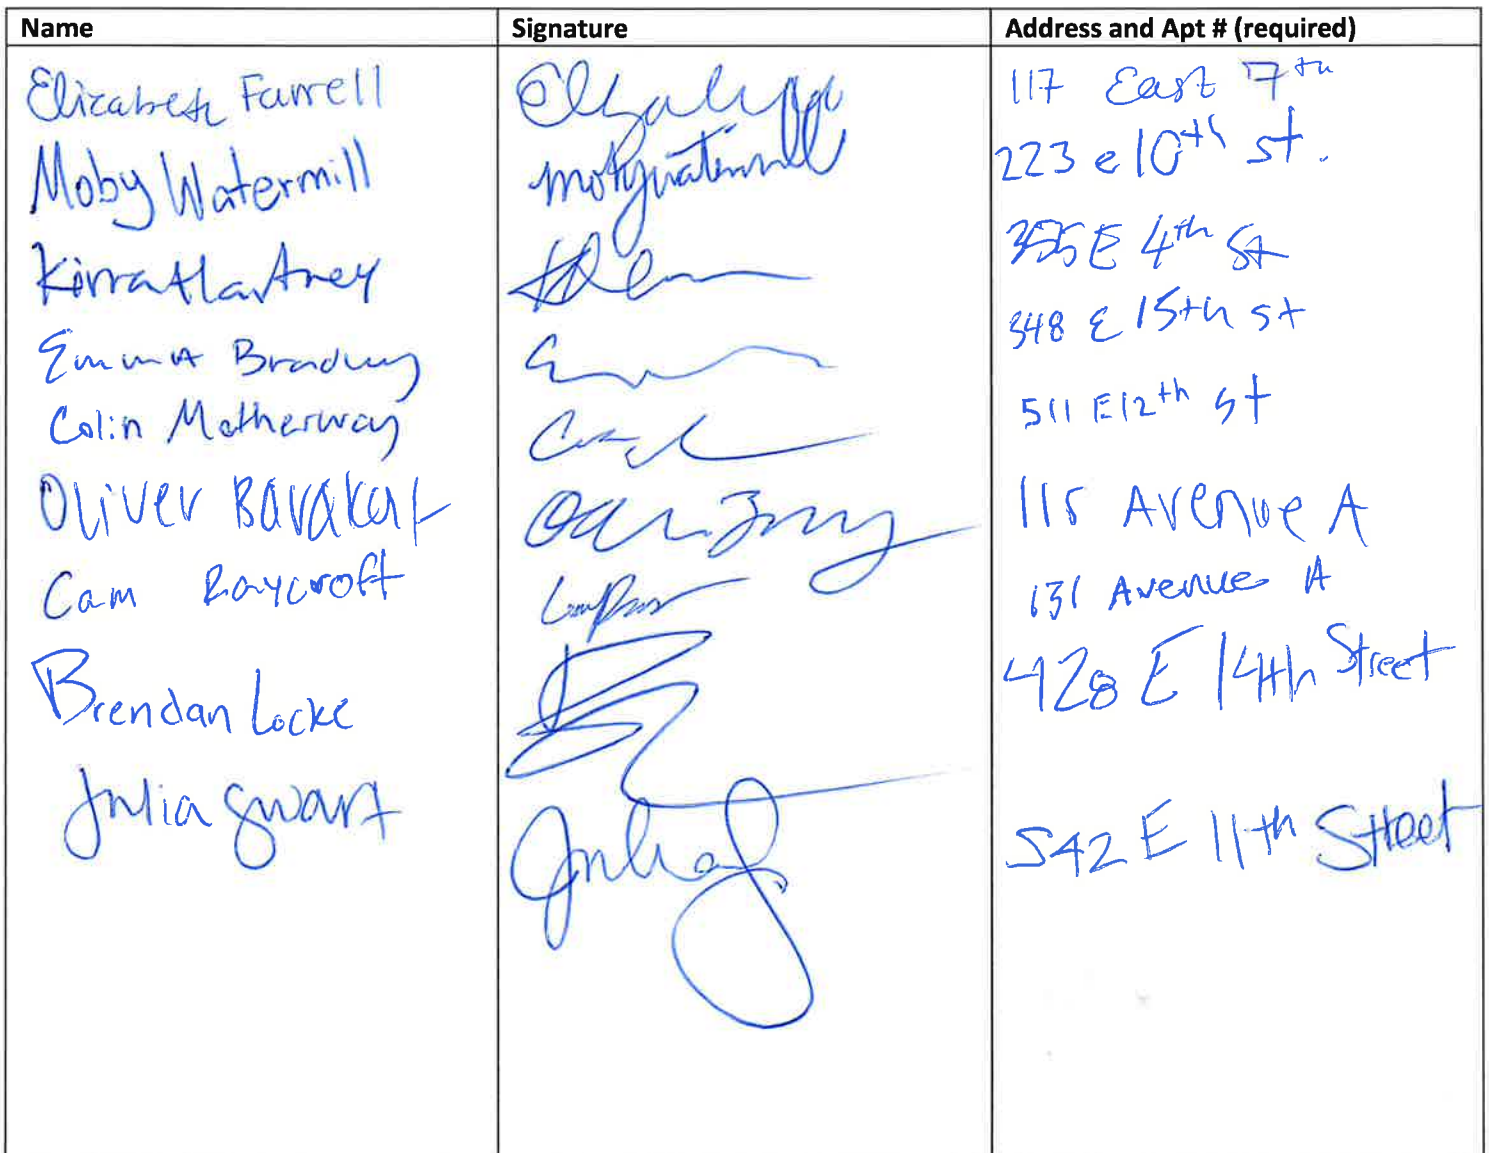 Name Signature Address and Apt # (required)
Elizabeth Farrell 117 East 7th
Moby Watermill Mobywatermill 223 e 10th st.
Kirra Hartney E 4th St
Emma 348 E 15th st
Colin Motherway 511 E 12th st
Oliver Barakat 115 Avenue A
Cam Raycroft 131 Avenue A
Brendan Locke 428 E 14th Street
Julia Swart Julia S 542 E 11th Street